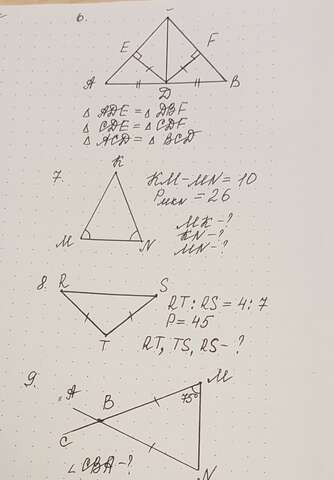 6.
C
E
F
A
D
B
△ ADE = △ DBF
△ CDE = △ CDF
△ ACD = △ BCD
7.
K
KM - MN = 10
PMKN = 26
MK - ?
KN - ?
MN - ?
M
N
8.
R
S
RT : RS = 4 : 7
P = 45
T
RT, TS, RS - ?
9.
M
A
75°
B
C
∠ CBA - ?
N